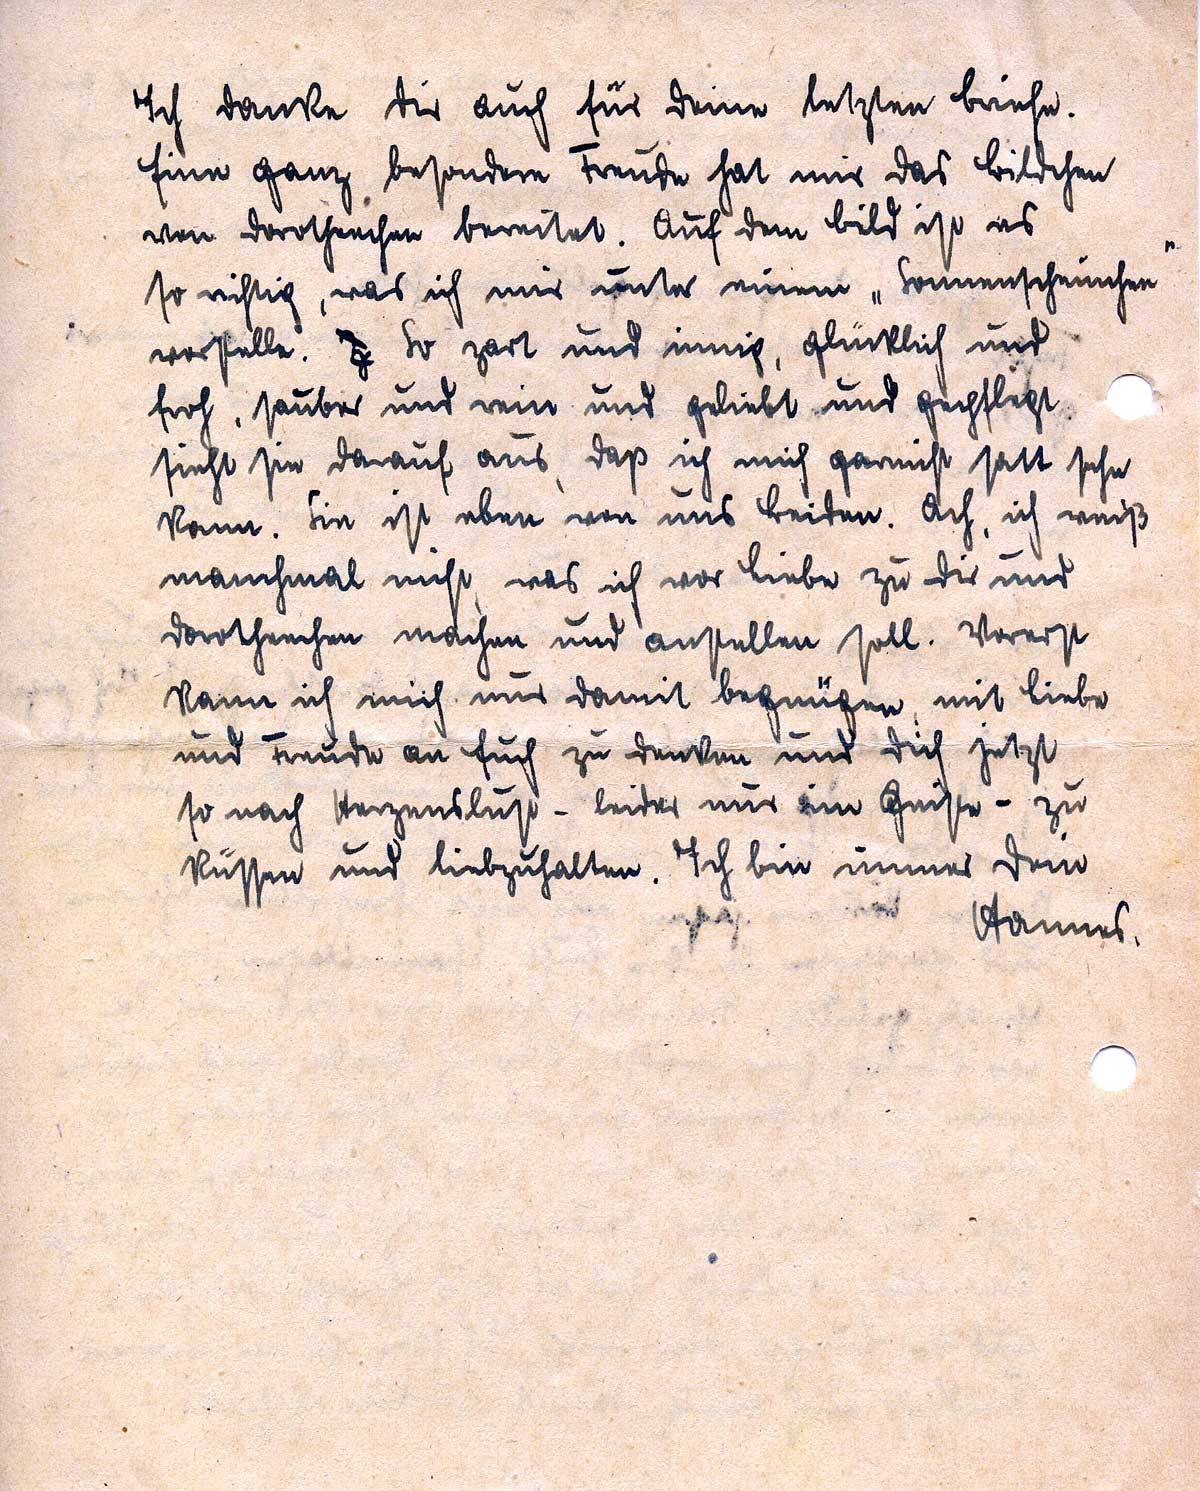 Ich danke Dir auch für Deine letzten Briefe.
Eine ganz besondere Freude hat mir das Bildchen
von Dorotheechen bereitet. Auf dem Bild ist es
so richtig, was ich mir unter einem „Sonnenscheinchen"
vorstelle. So zart und innig, glücklich und
froh, sauber und rein und geliebt und gepflegt
sieht sie darauf aus, daß ich mich garnicht satt sehn
kann. Sie ist eben von uns beiden. Ach, ich weiß
manchmal nicht, was ich vor Liebe zu Dir und
Dorotheechen machen und anstellen soll. Vorerst
kann ich mich nur damit begnügen, mit Liebe
und Freude an Euch zu denken und Dich jetzt
so nach Herzenslust - leider nur im Geiste - zu
küssen und liebzuhalten. Ich bin immer Dein
Hannes.